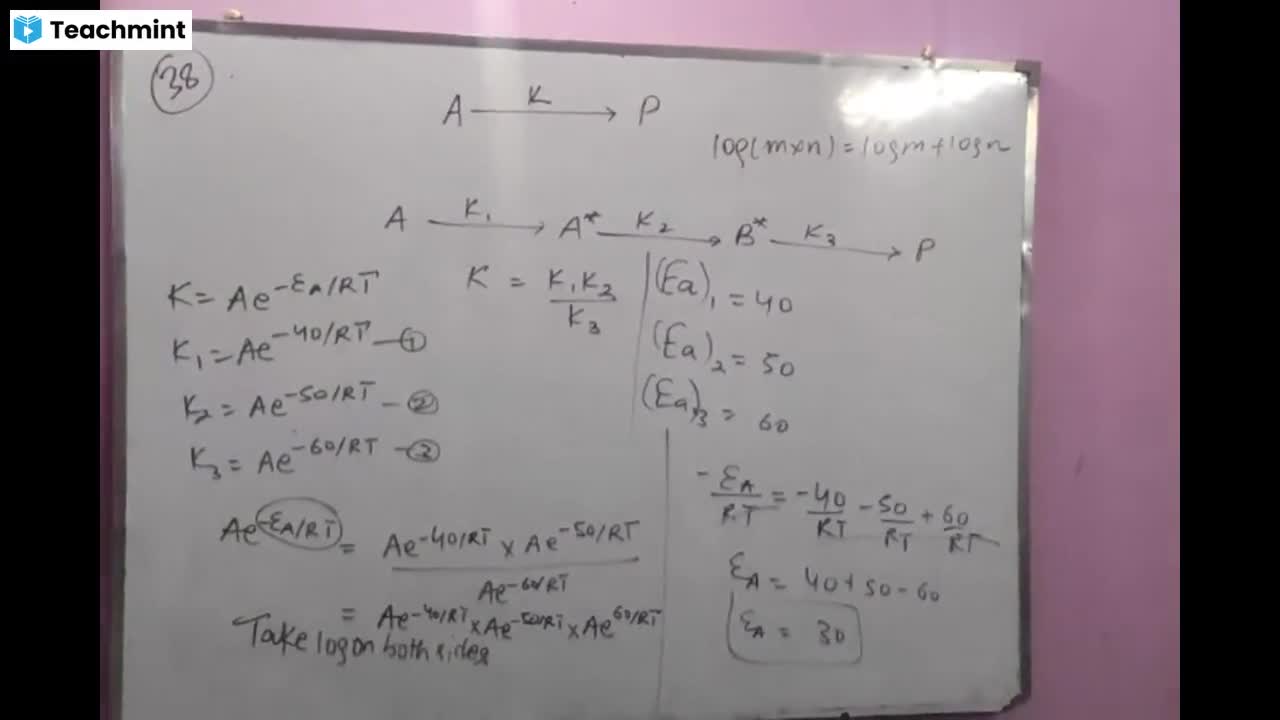 Teachmint
38
A K→ P
log(m×n) = logm + logn
A K₁→ A* K₂→ B* K₃→ P
K = Ae^-EA/RT
K₁ = Ae^-40/RT — ①
K₂ = Ae^-50/RT — ②
K₃ = Ae^-60/RT — ③
K = K₁K₂/K₃
(Ea)₁ = 40
(Ea)₂ = 50
(Ea)₃ = 60
Ae^-EA/RT = Ae^-40/RT × Ae^-50/RT / Ae^-60/RT
= Ae^-40/RT × Ae^-50/RT × Ae^60/RT
Take log on both sides
-EA/RT = -40/RT - 50/RT + 60/RT
EA = 40+50-60
EA = 30